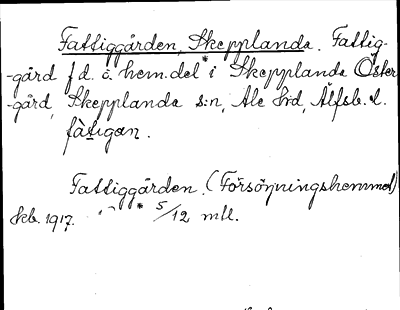 Fattiggården, Skepplanda. Fattig-
-gård f d. å hem.del * i Skepplanda Öster-
-gård, Skepplanda s:n, Ale hd, Älfsb. l.
fàtigan.
Fattiggården. (Försörjningshemmet)
Skb. 1917. * 5/12 mtl.